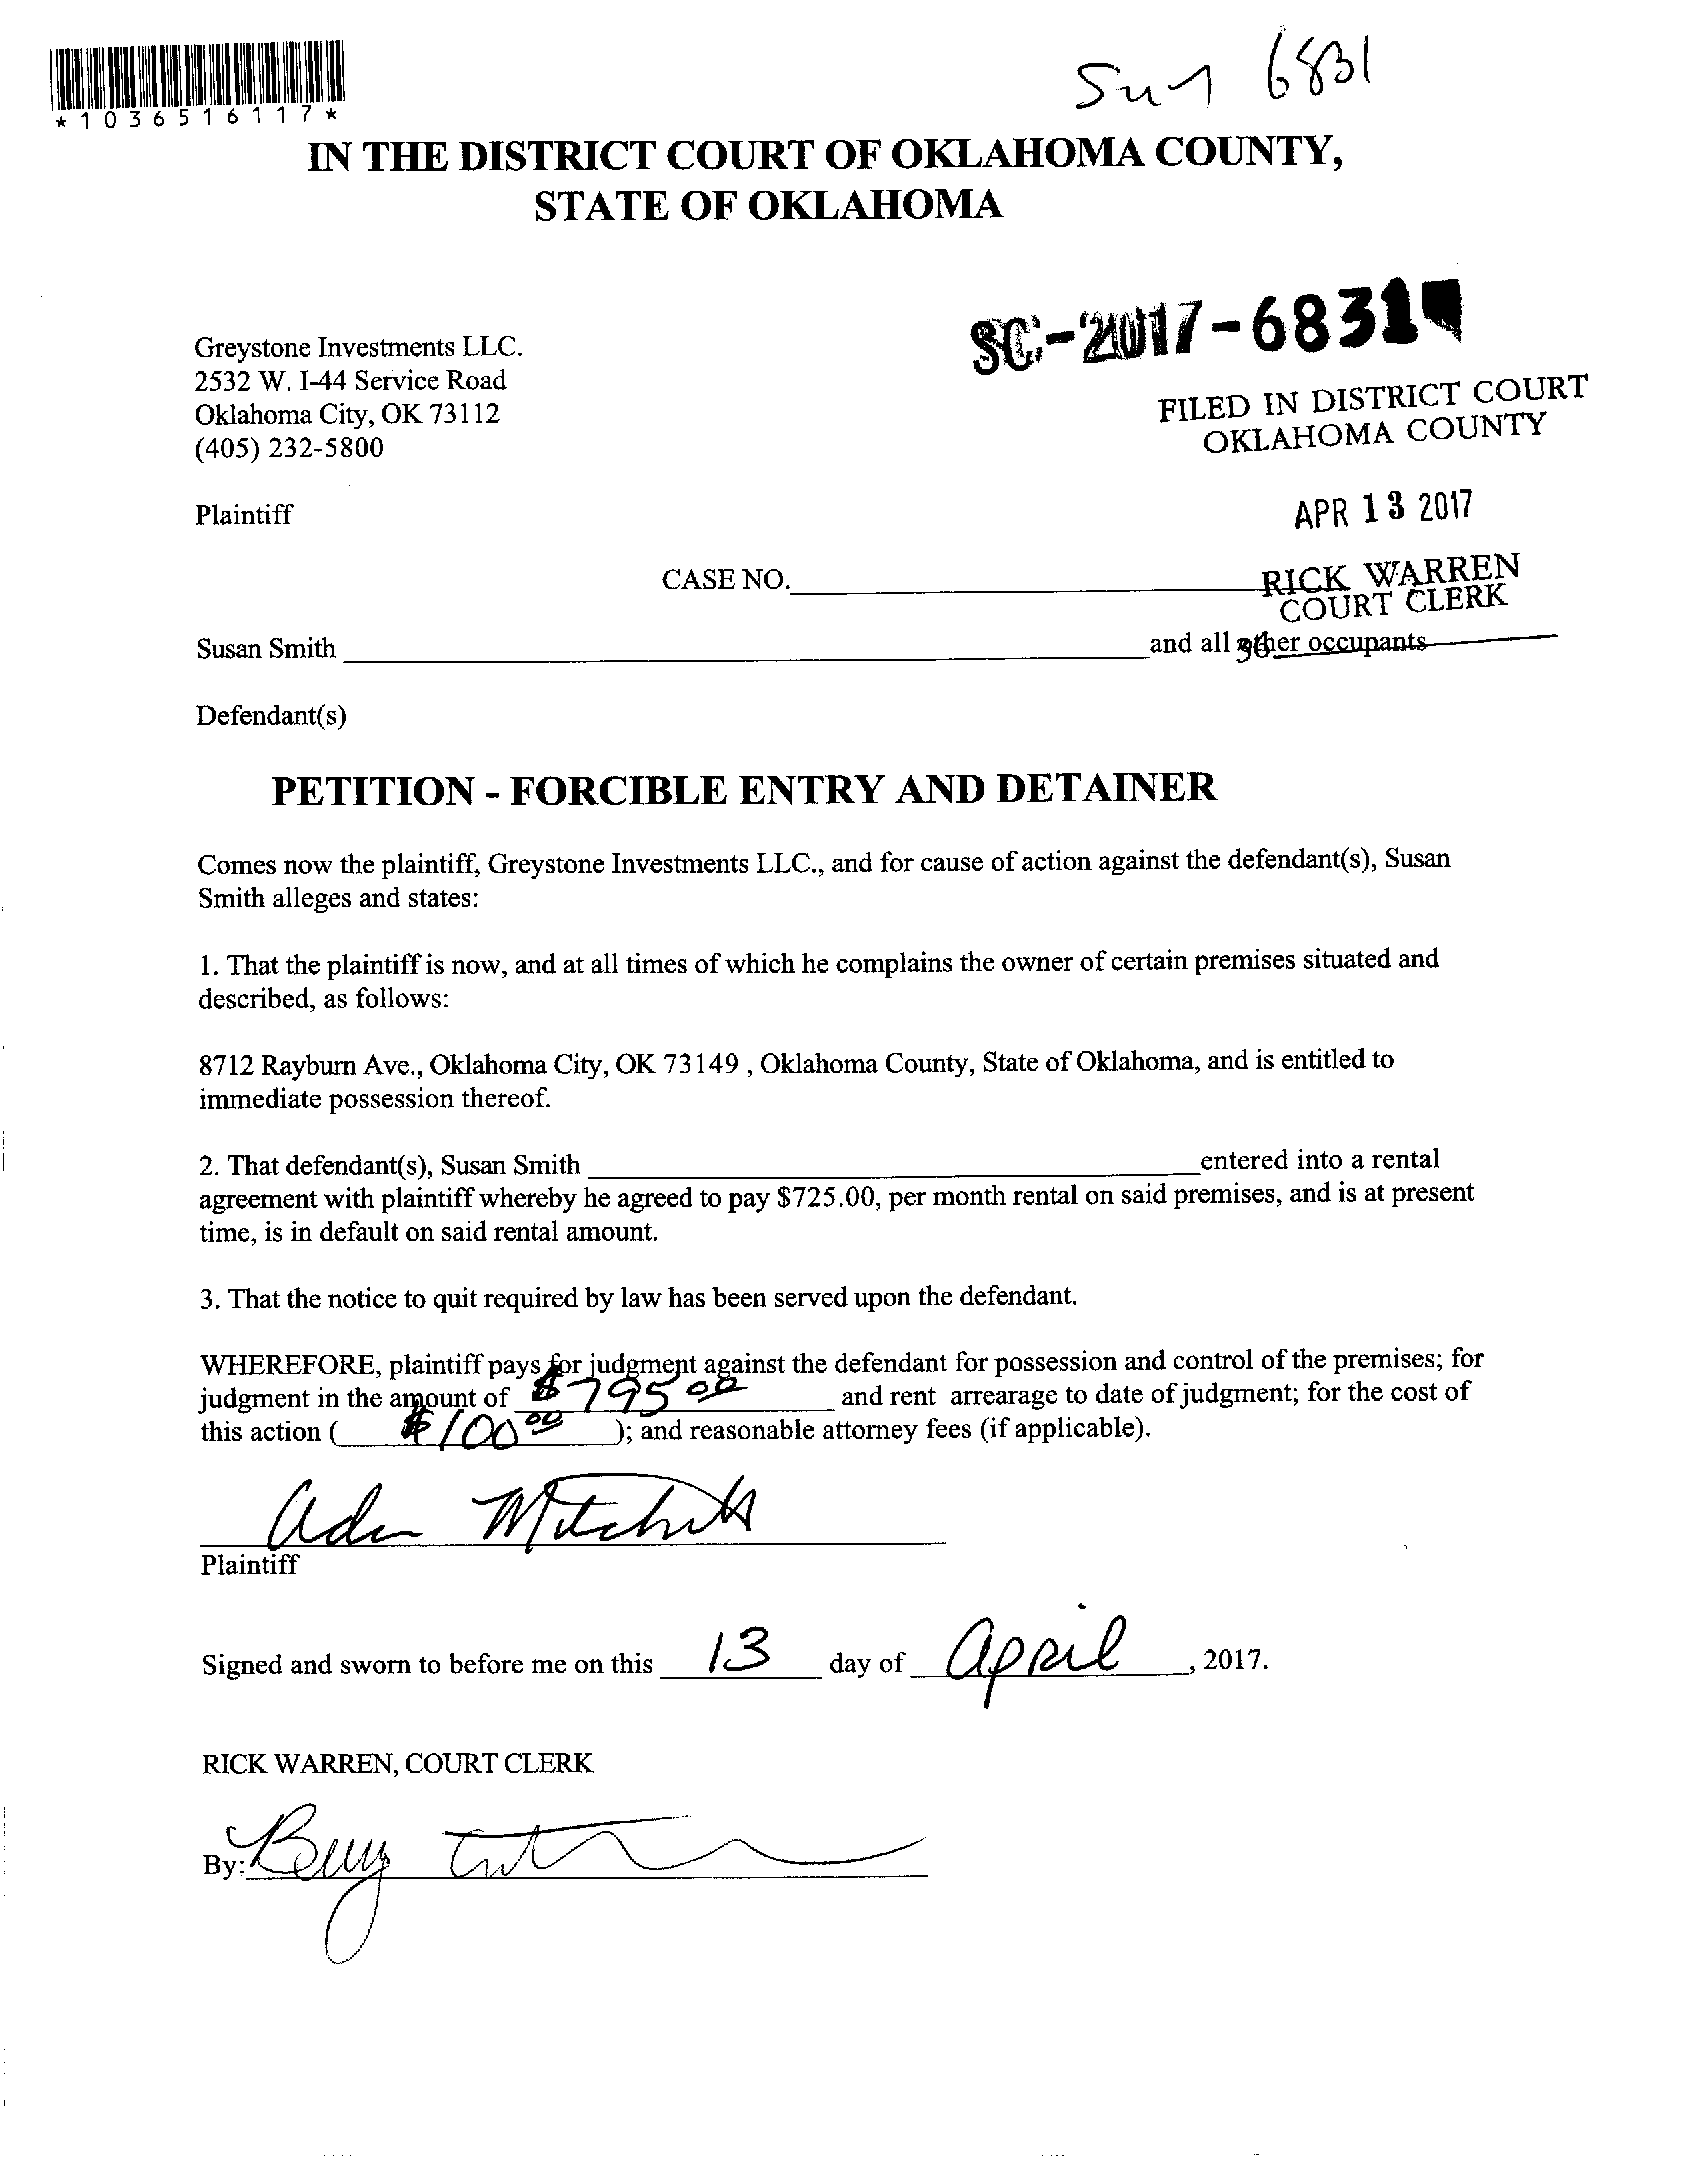 *1036516117*
6831
IN THE DISTRICT COURT OF OKLAHOMA COUNTY,
STATE OF OKLAHOMA
SC-2017-6831
Greystone Investments LLC.
2532 W. I-44 Service Road
Oklahoma City, OK 73112
(405) 232-5800
FILED IN DISTRICT COURT
OKLAHOMA COUNTY
Plaintiff
APR 13 2017
CASE NO.
RICK WARREN
COURT CLERK
Susan Smith and all other occupants
Defendant(s)
PETITION - FORCIBLE ENTRY AND DETAINER
Comes now the plaintiff, Greystone Investments LLC., and for cause of action against the defendant(s), Susan
Smith alleges and states:
1. That the plaintiff is now, and at all times of which he complains the owner of certain premises situated and
described, as follows:
8712 Rayburn Ave., Oklahoma City, OK 73149 , Oklahoma County, State of Oklahoma, and is entitled to
immediate possession thereof.
2. That defendant(s), Susan Smith entered into a rental
agreement with plaintiff whereby he agreed to pay $725.00, per month rental on said premises, and is at present
time, is in default on said rental amount.
3. That the notice to quit required by law has been served upon the defendant.
WHEREFORE, plaintiff pays for judgment against the defendant for possession and control of the premises; for
judgment in the amount of $795 00 and rent arrearage to date of judgment; for the cost of
this action ( $100 00 ); and reasonable attorney fees (if applicable).
Plaintiff
Signed and sworn to before me on this 13 day of April , 2017.
RICK WARREN, COURT CLERK
By: